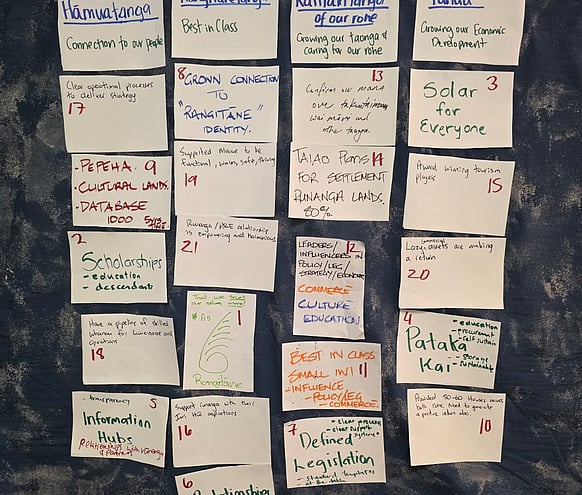 Hāmuatanga
Connection to our people
Clear operational processes
to deliver strategy
17
• PEPEHA. 9
• CULTURAL LANDS.
• DATABASE
1000
2
Scholarships
- education
- descendants
Have a pipeline of skilled
operations
18
- transparency 5
Information
Hubs
Relationships with
Best in Class
8
GROWN CONNECTION
TO
"RANGITĀNE"
IDENTITY.
Supported Marae to be
functional, warm, safe, thriving
19
relationship
is empowering and harmonious
21
That we trust
our
# As 1
Rangitāne
Support Runanga with their
16
6
Relationship
of our rohe
Growing our taonga &
caring for our rohe
13
Confirm our mana
over takutaimoana
wai māori and
other taonga
TAIAO Plans 14
FOR SETTLEMENT
RUNANGA LANDS.
80%
LEADERS/ 12
INFLUENCERS IN
POLICY/LEG/
STRATEGY/ECONOMIC
COMMERCE
CULTURE
EDUCATION
BEST IN CLASS
SMALL IWI 11
- INFLUENCE
- POLICY/LEG
- COMMERCE.
7
- clear process
- clear support
systems
Defined
Legislation
- standard templates
at the table
Growing our Economic
Development
3
Solar
for
Everyone
Award winning tourism
players
15
assets are making
a return
20
4
- education
- procurement
- self sustain
Pataka
Kai
- storage
- sustainable
Provided 50-60 Houses across
both
10